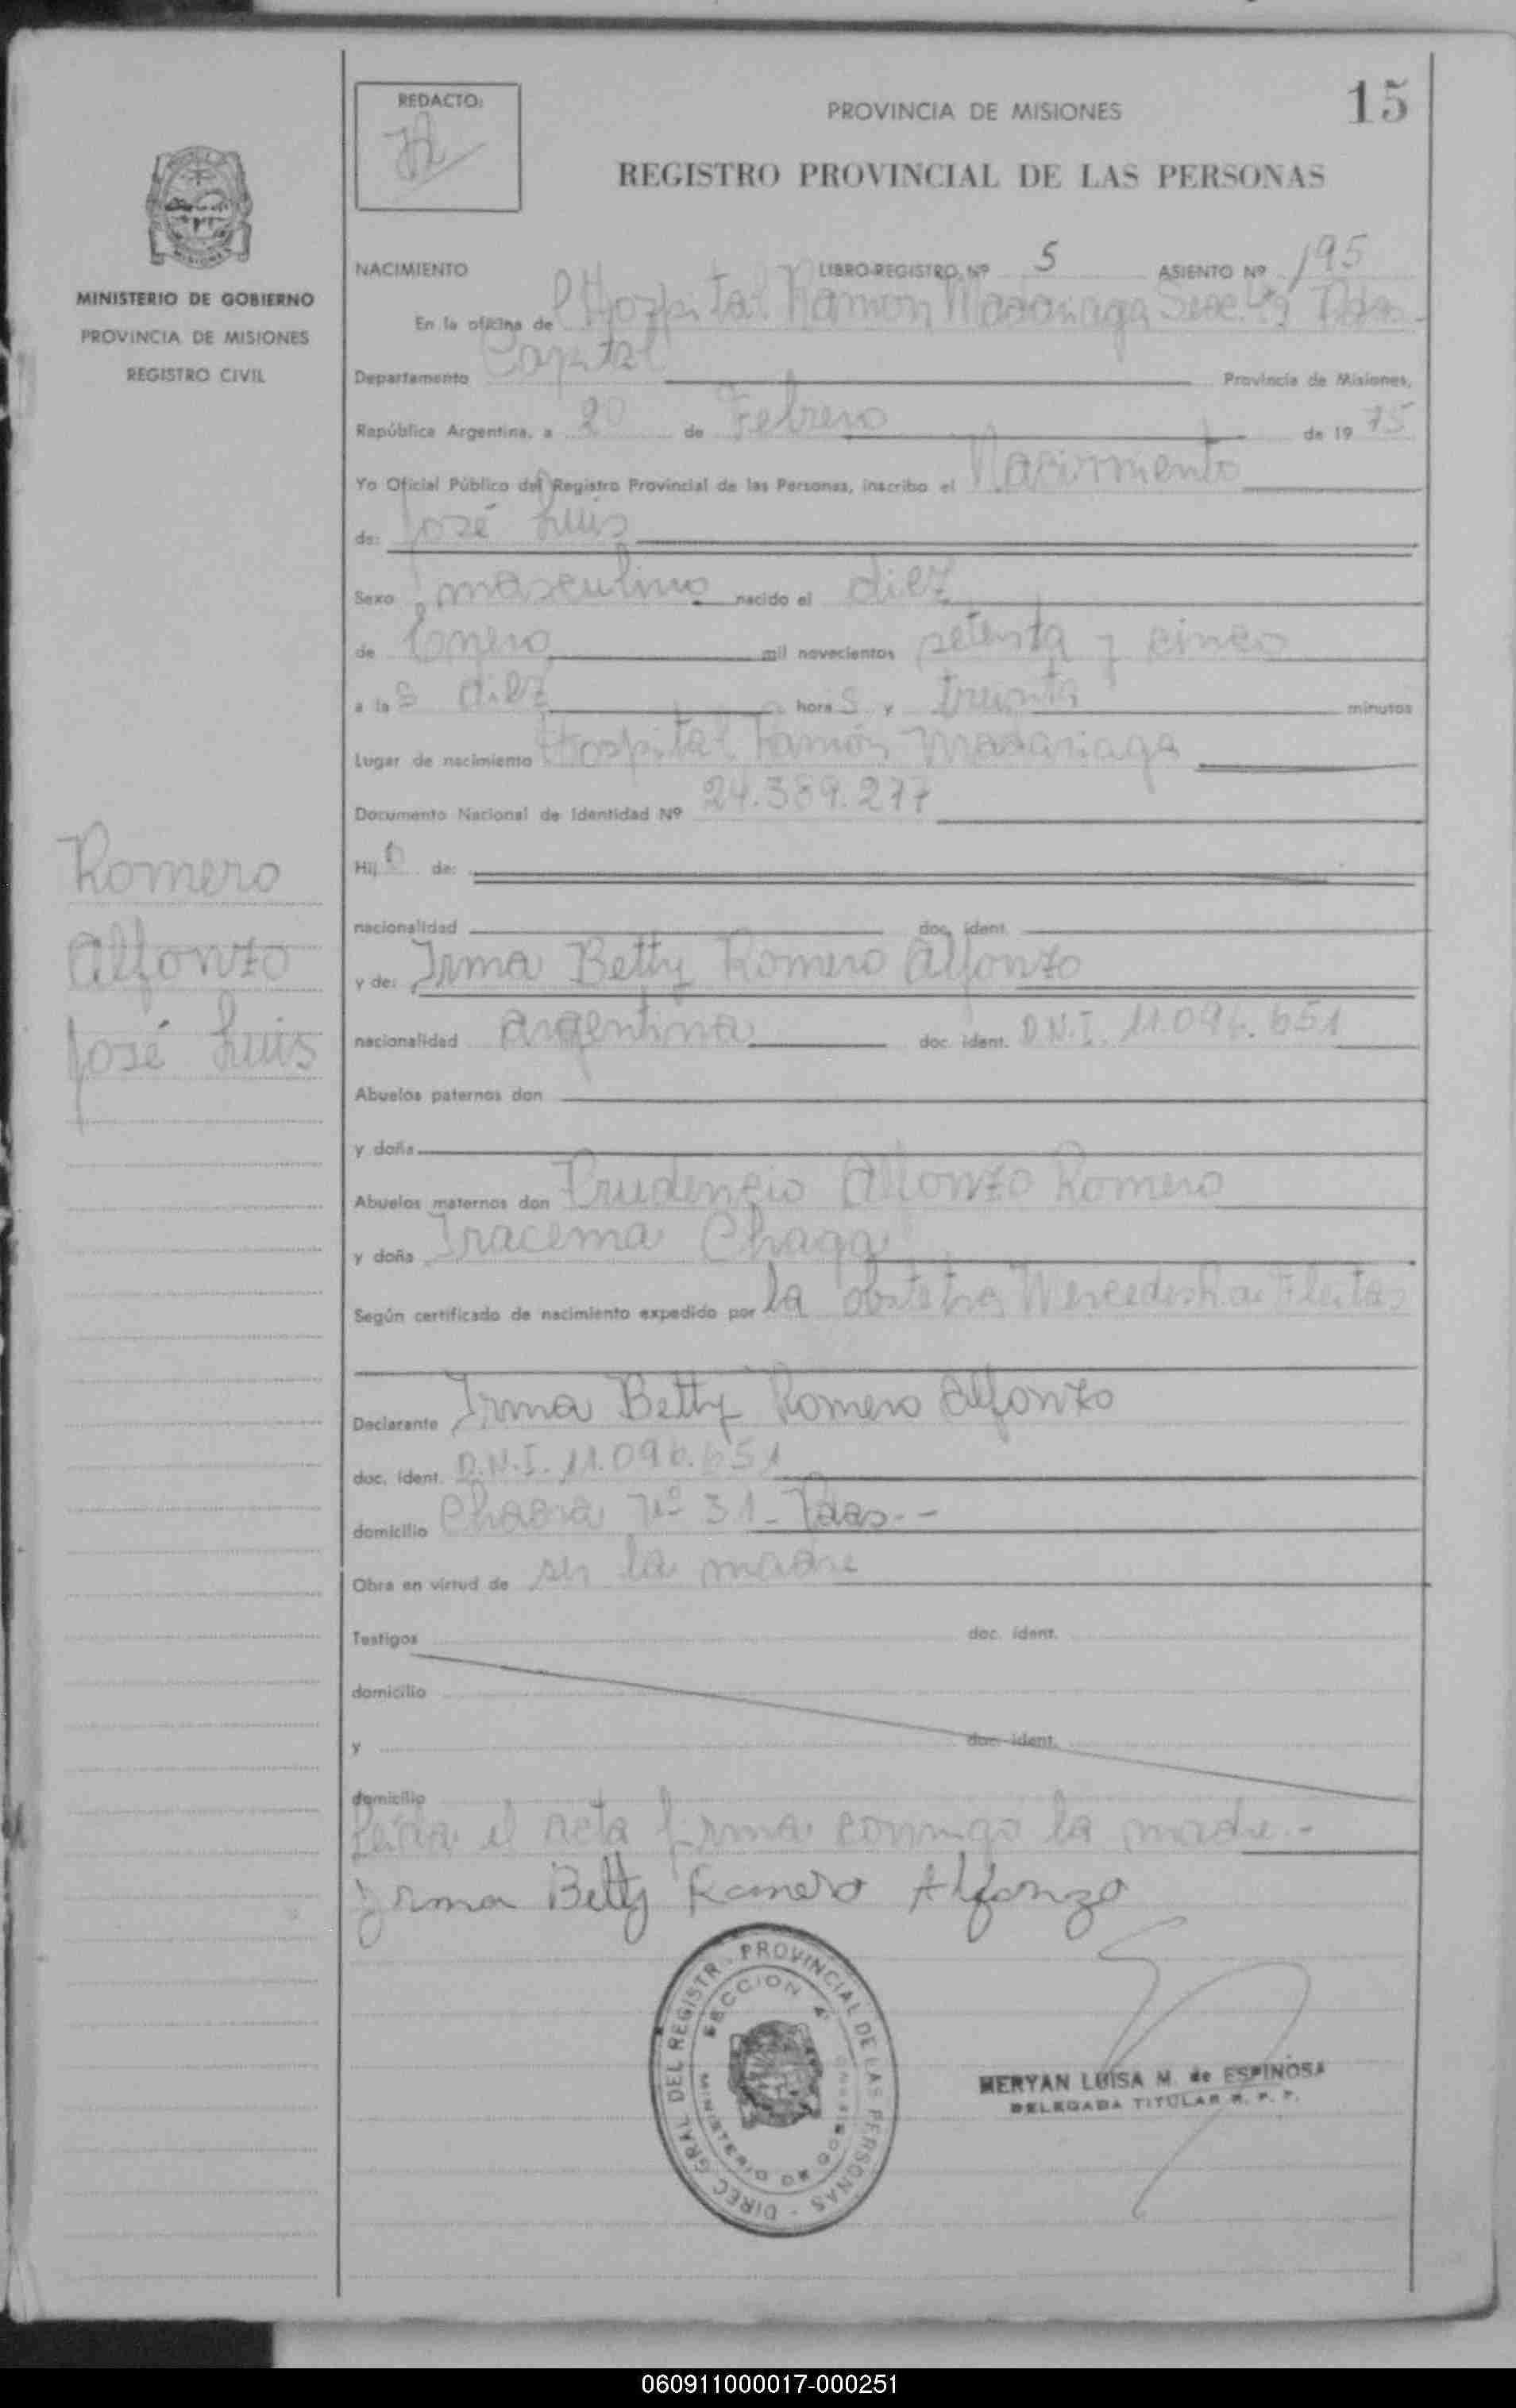 15
REDACTO:
PROVINCIA DE MISIONES
REGISTRO PROVINCIAL DE LAS PERSONAS
MISIONES
MINISTERIO DE GOBIERNO
PROVINCIA DE MISIONES
REGISTRO CIVIL
Romero
Alfonzo
José Luis
NACIMIENTO LIBRO-REGISTRO Nº 5 ASIENTO Nº 195
En la oficina de Hospital Ramón Madariaga Secc. 4ta Pdas.
Departamento Capital Provincia de Misiones,
República Argentina, a 20 de Febrero de 1975
Yo Oficial Público del Registro Provincial de las Personas, inscribo el Nacimiento
de: José Luis
Sexo masculino nacido el diez
de Enero mil novecientos setenta y cinco
a las diez horas y treinta minutos
Lugar de nacimiento Hospital Ramón Madariaga
Documento Nacional de Identidad Nº 24.389.277
Hijo de:
nacionalidad doc. ident.
y de: Irma Betty Romero Alfonzo
nacionalidad argentina doc. ident. D.N.I. 11.096.651
Abuelos paternos don
y doña
Abuelos maternos don Prudencio Alfonzo Romero
y doña Iracema Chaga
Según certificado de nacimiento expedido por la obstetra Mercedes Fleitas
Declarante Irma Betty Romero Alfonzo
doc. ident. D.N.I. 11.096.651
domicilio Chacra Nº 31 - Pdas. -
Obra en virtud de ser la madre
Testigos doc. ident.
domicilio
y doc. ident.
domicilio
Leída el acta firma conmigo la madre.-
Irma Betty Romero Alfonzo
DIREC. GRAL. DEL REGISTR. PROVINCIAL DE LAS PERSONAS -
SECCION 4ª
MINISTERIO DE GOBIERNO
MERYAN LUISA M. de ESPINOSA
DELEGADA TITULAR R. P. P.
060911000017-000251